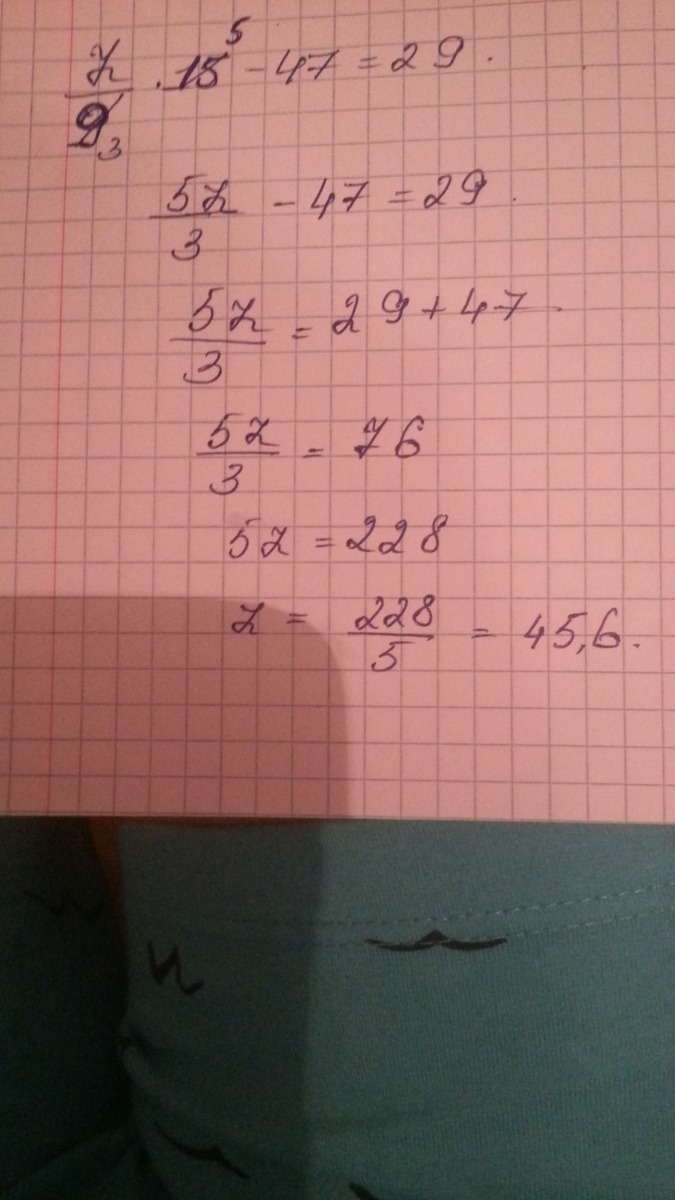 z/9 3 · 15 5 - 47 = 29.
5z/3 - 47 = 29.
5z/3 = 29 + 47
5z/3 = 76
5z = 228
z = 228/5 = 45,6.